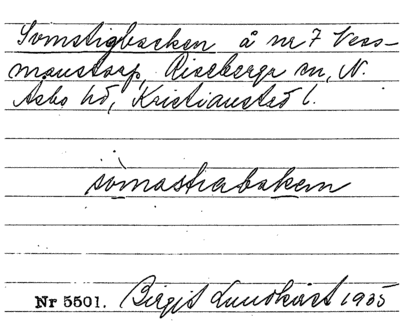 Svmstigbacken å nr 7 Vess-
manstorp, Riseberga sn, N.
Åsbo hd, Kristianstad l.
sòmastiabakem
Nr 5501. Birgit Lundkvist 1935